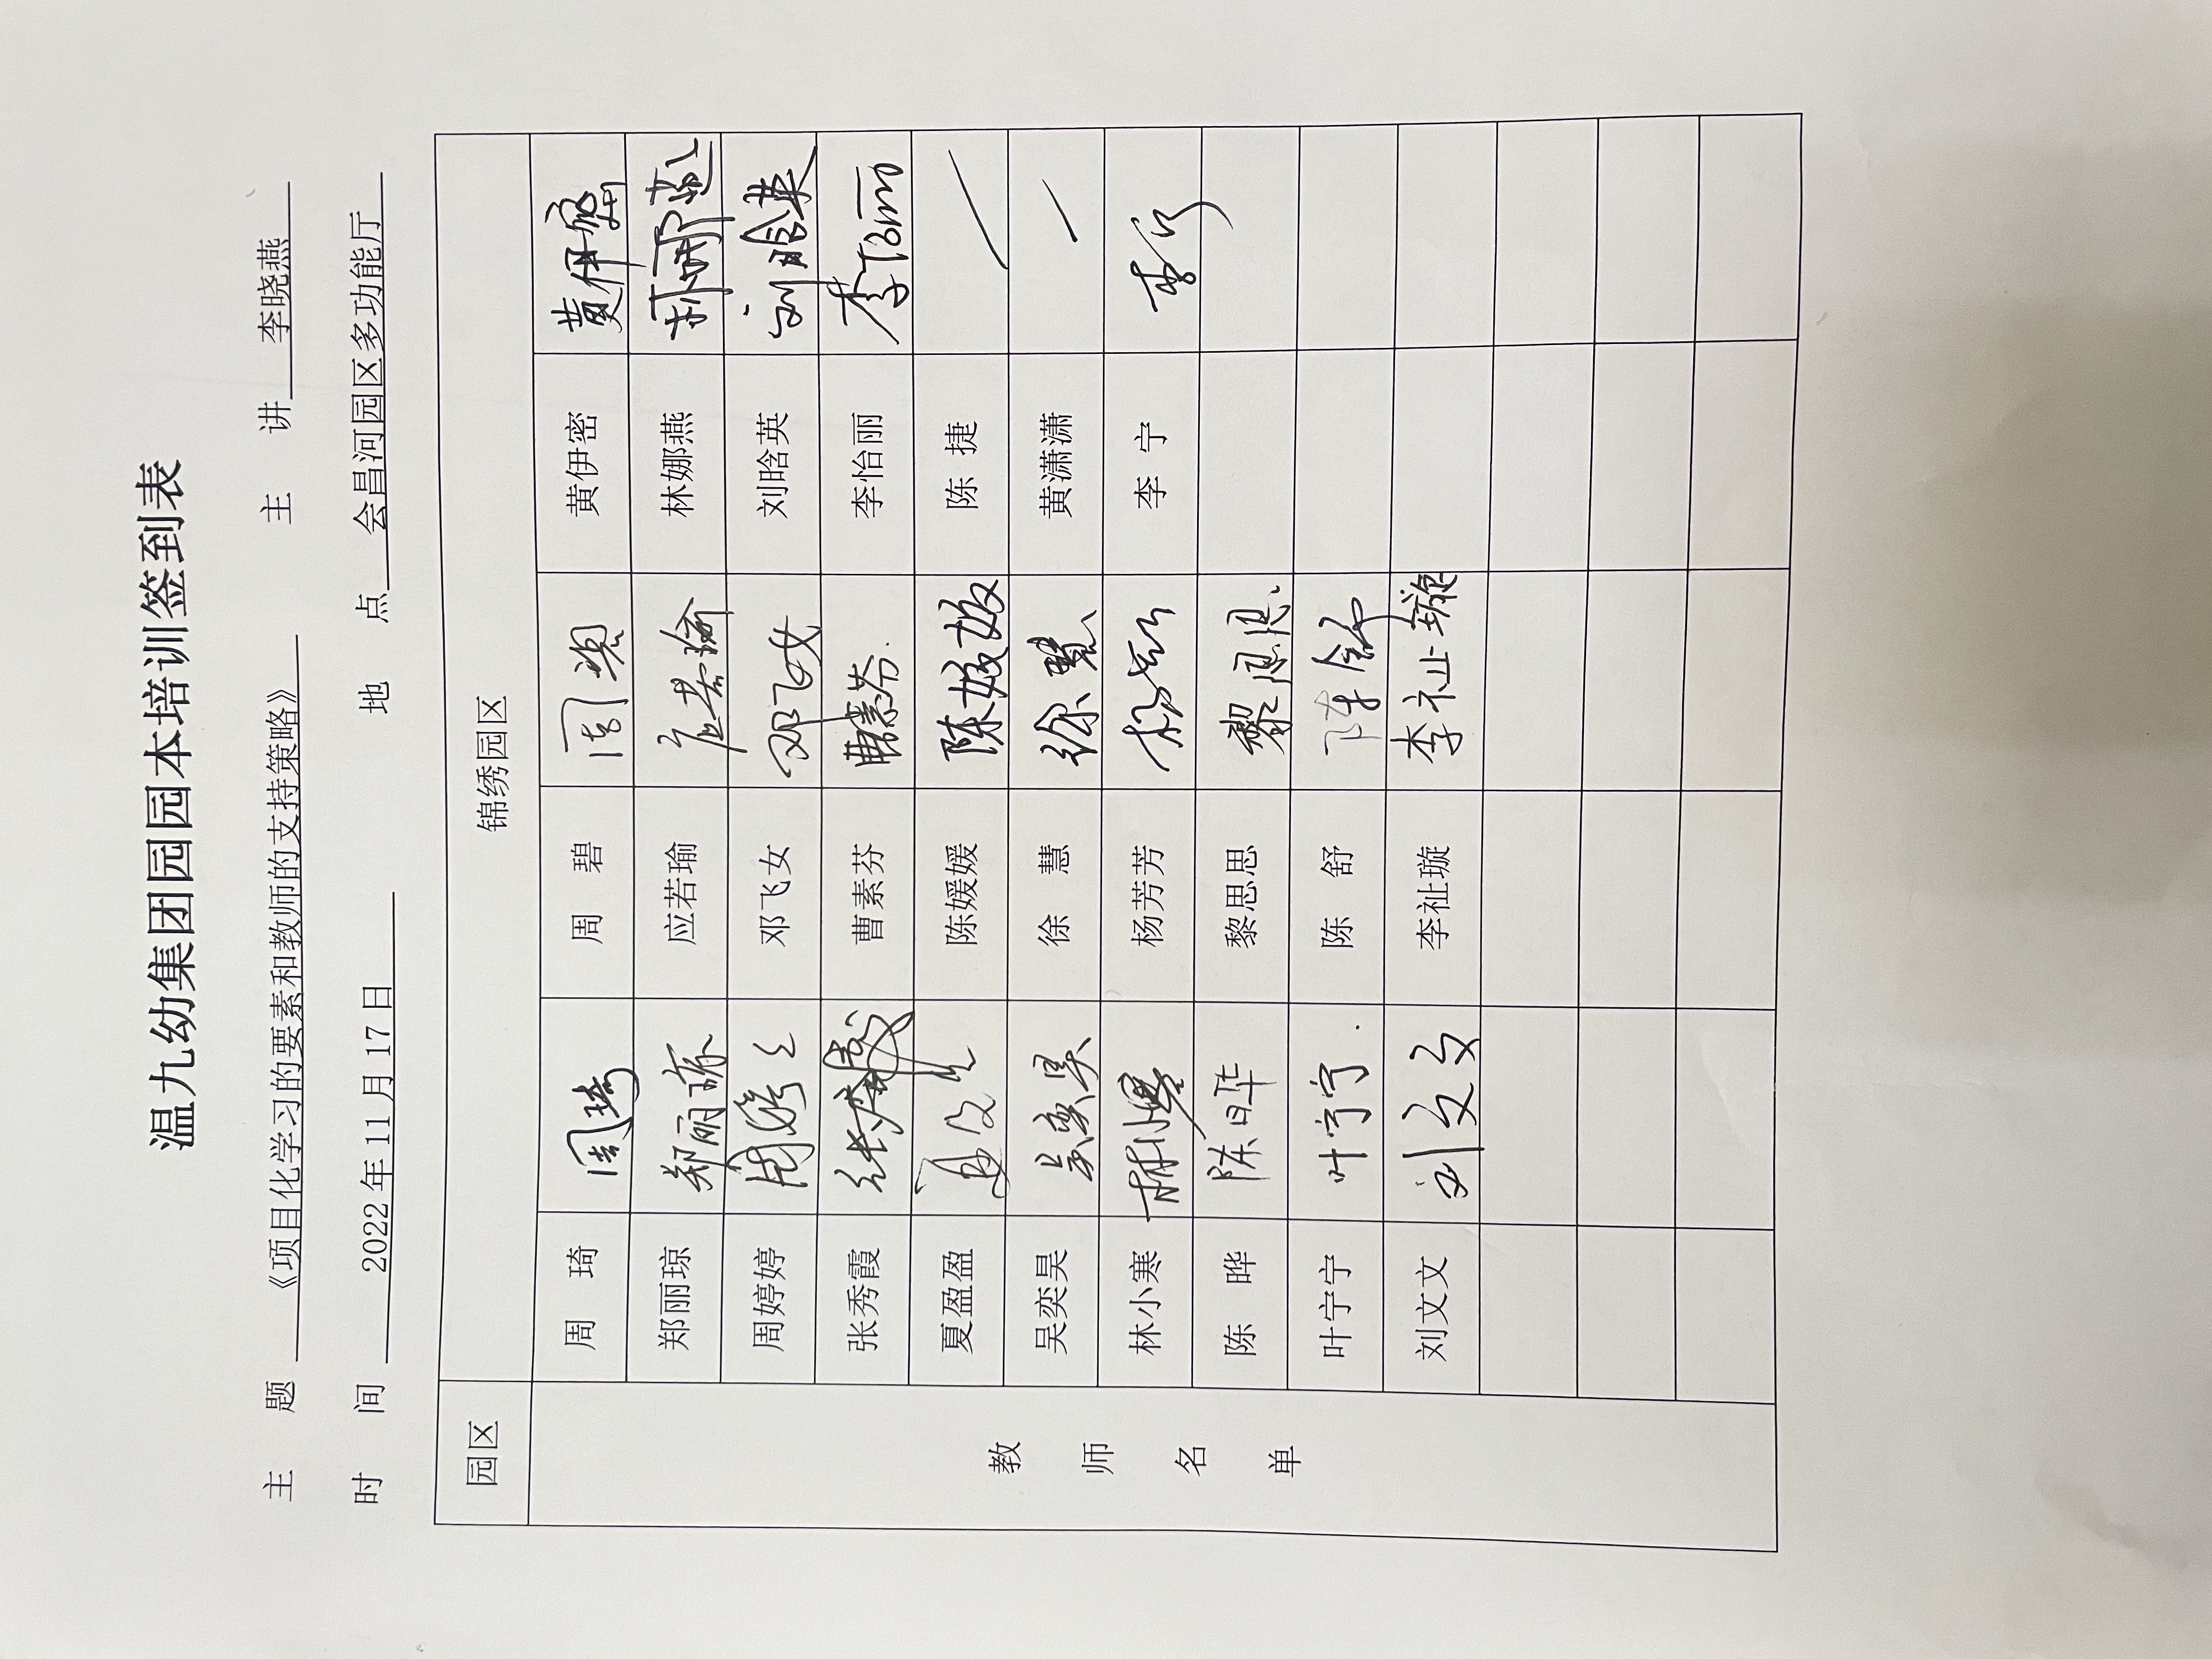 温九幼集团园园本培训签到表
主 题 《项目化学习的要素和教师的支持策略》 主 讲 李晓燕
时 间 2022年11月17日 地 点 会昌河园区多功能厅
园区 锦绣园区
教师名单
周 琦 周琦 周 碧 周碧 黄伊密 黄伊密
郑丽琼 郑丽琼 应若瑜 应若瑜 林娜燕 林娜燕
周婷婷 周婷婷 邓飞女 邓飞女 刘晗英 刘晗英
张秀霞 张秀霞 曹素芬 曹素芬 李怡丽 李怡丽
夏盈盈 陈媛媛 陈媛媛 陈 捷
吴奕昊 吴奕昊 徐 慧 徐慧 黄潇潇
林小寒 林小寒 杨芳芳 杨芳芳 李 宁 李宁
陈 晔 陈晔 黎思思 黎思思
叶宁宁 叶宁宁 陈 舒 陈舒
刘文文 刘文文 李祉璇 李祉璇